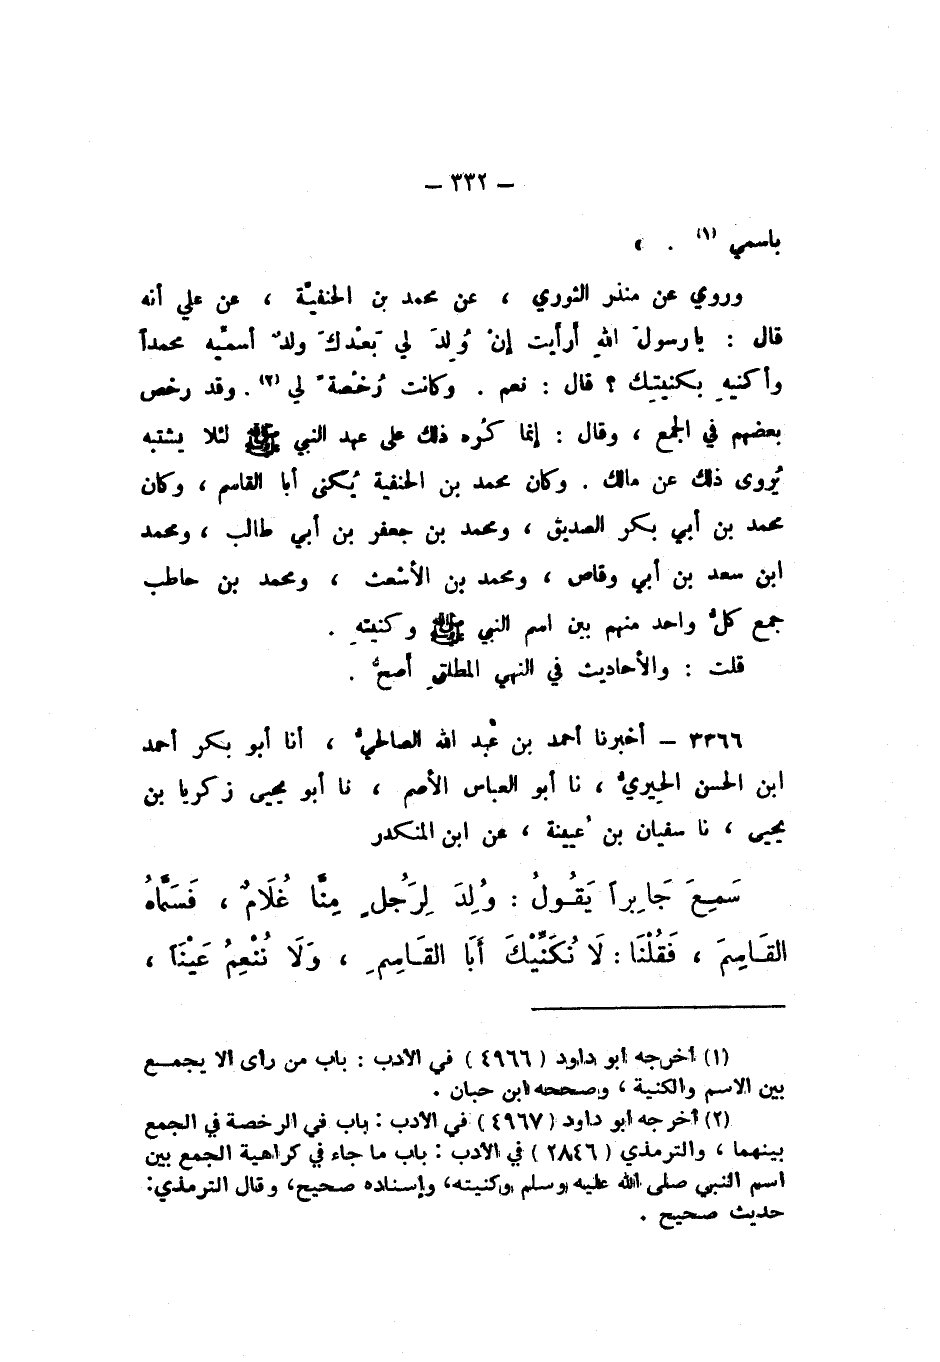 – ٣٣٢ –
باسمي (١) . ،
وروي عن منذر الثوري ، عن محمد بن الحنفيّة ، عن علي أنه
قال : يا رسولَ اللهِ أرأيت إنْ وُلِدَ لي بَعْدكَ ولدٌ أسميّه محمداً
وأكنيهِ بكنيتِك ؟ قال : نعم . وكانت رُخْصةً لي (٢) . وقد رخص
بعضهم في الجمع ، وقال : إنما كُره ذلك على عهد النبي ﷺ لئلا يشتبه
يُروى ذلك عن مالك . وكان محمد بن الحنفية يُكنى أبا القاسم ، وكان
محمد بن أبي بكر الصديق ، ومحمد بن جعفر بن أبي طالب ، ومحمد
ابن سعد بن أبي وقاص ، ومحمد بن الأشعث ، ومحمد بن حاطب
جمع كلُّ واحد منهم بين اسم النبي ﷺ وكنيتهِ .
قلت : والأحاديث في النهي المطلقِ أصحُّ .
٣٣٦٦ – أخبرنا أحمد بن عَبد الله الصالحيُّ ، أنا أبو بكر أحمد
ابن الحسن الحِيريُّ ، نا أبو العباس الأصم ، نا أبو يحيى زكريا بن
يحيى ، نا سفيان بن عُيينة ، عن ابن المنكدر
سَمِعَ جَابِراً يَقُولُ : وُلِدَ لِرَجُلٍ مِنَّا غُلَامٌ ، فَسَمَّاهُ
القَاسِمَ ، فَقُلْنَا : لَا نُكَنِّيْكَ أَبَا القَاسِمِ ، وَلَا نُنْعِمُ عَيْنَاً ،
(١) أخرجه أبو داود ( ٤٩٦٦ ) في الأدب : باب من رأى ألا يجمع
بين الاسم والكنية ، وصححه ابن حبان .
(٢) أخرجه أبو داود ( ٤٩٦٧ ) في الأدب : باب في الرخصة في الجمع
بينهما ، والترمذي ( ٢٨٤٦ ) في الأدب : باب ما جاء في كراهية الجمع بين
اسم النبي صلى الله عليه وسلم وكنيته، وإسناده صحيح، وقال الترمذي:
حديث صحيح .